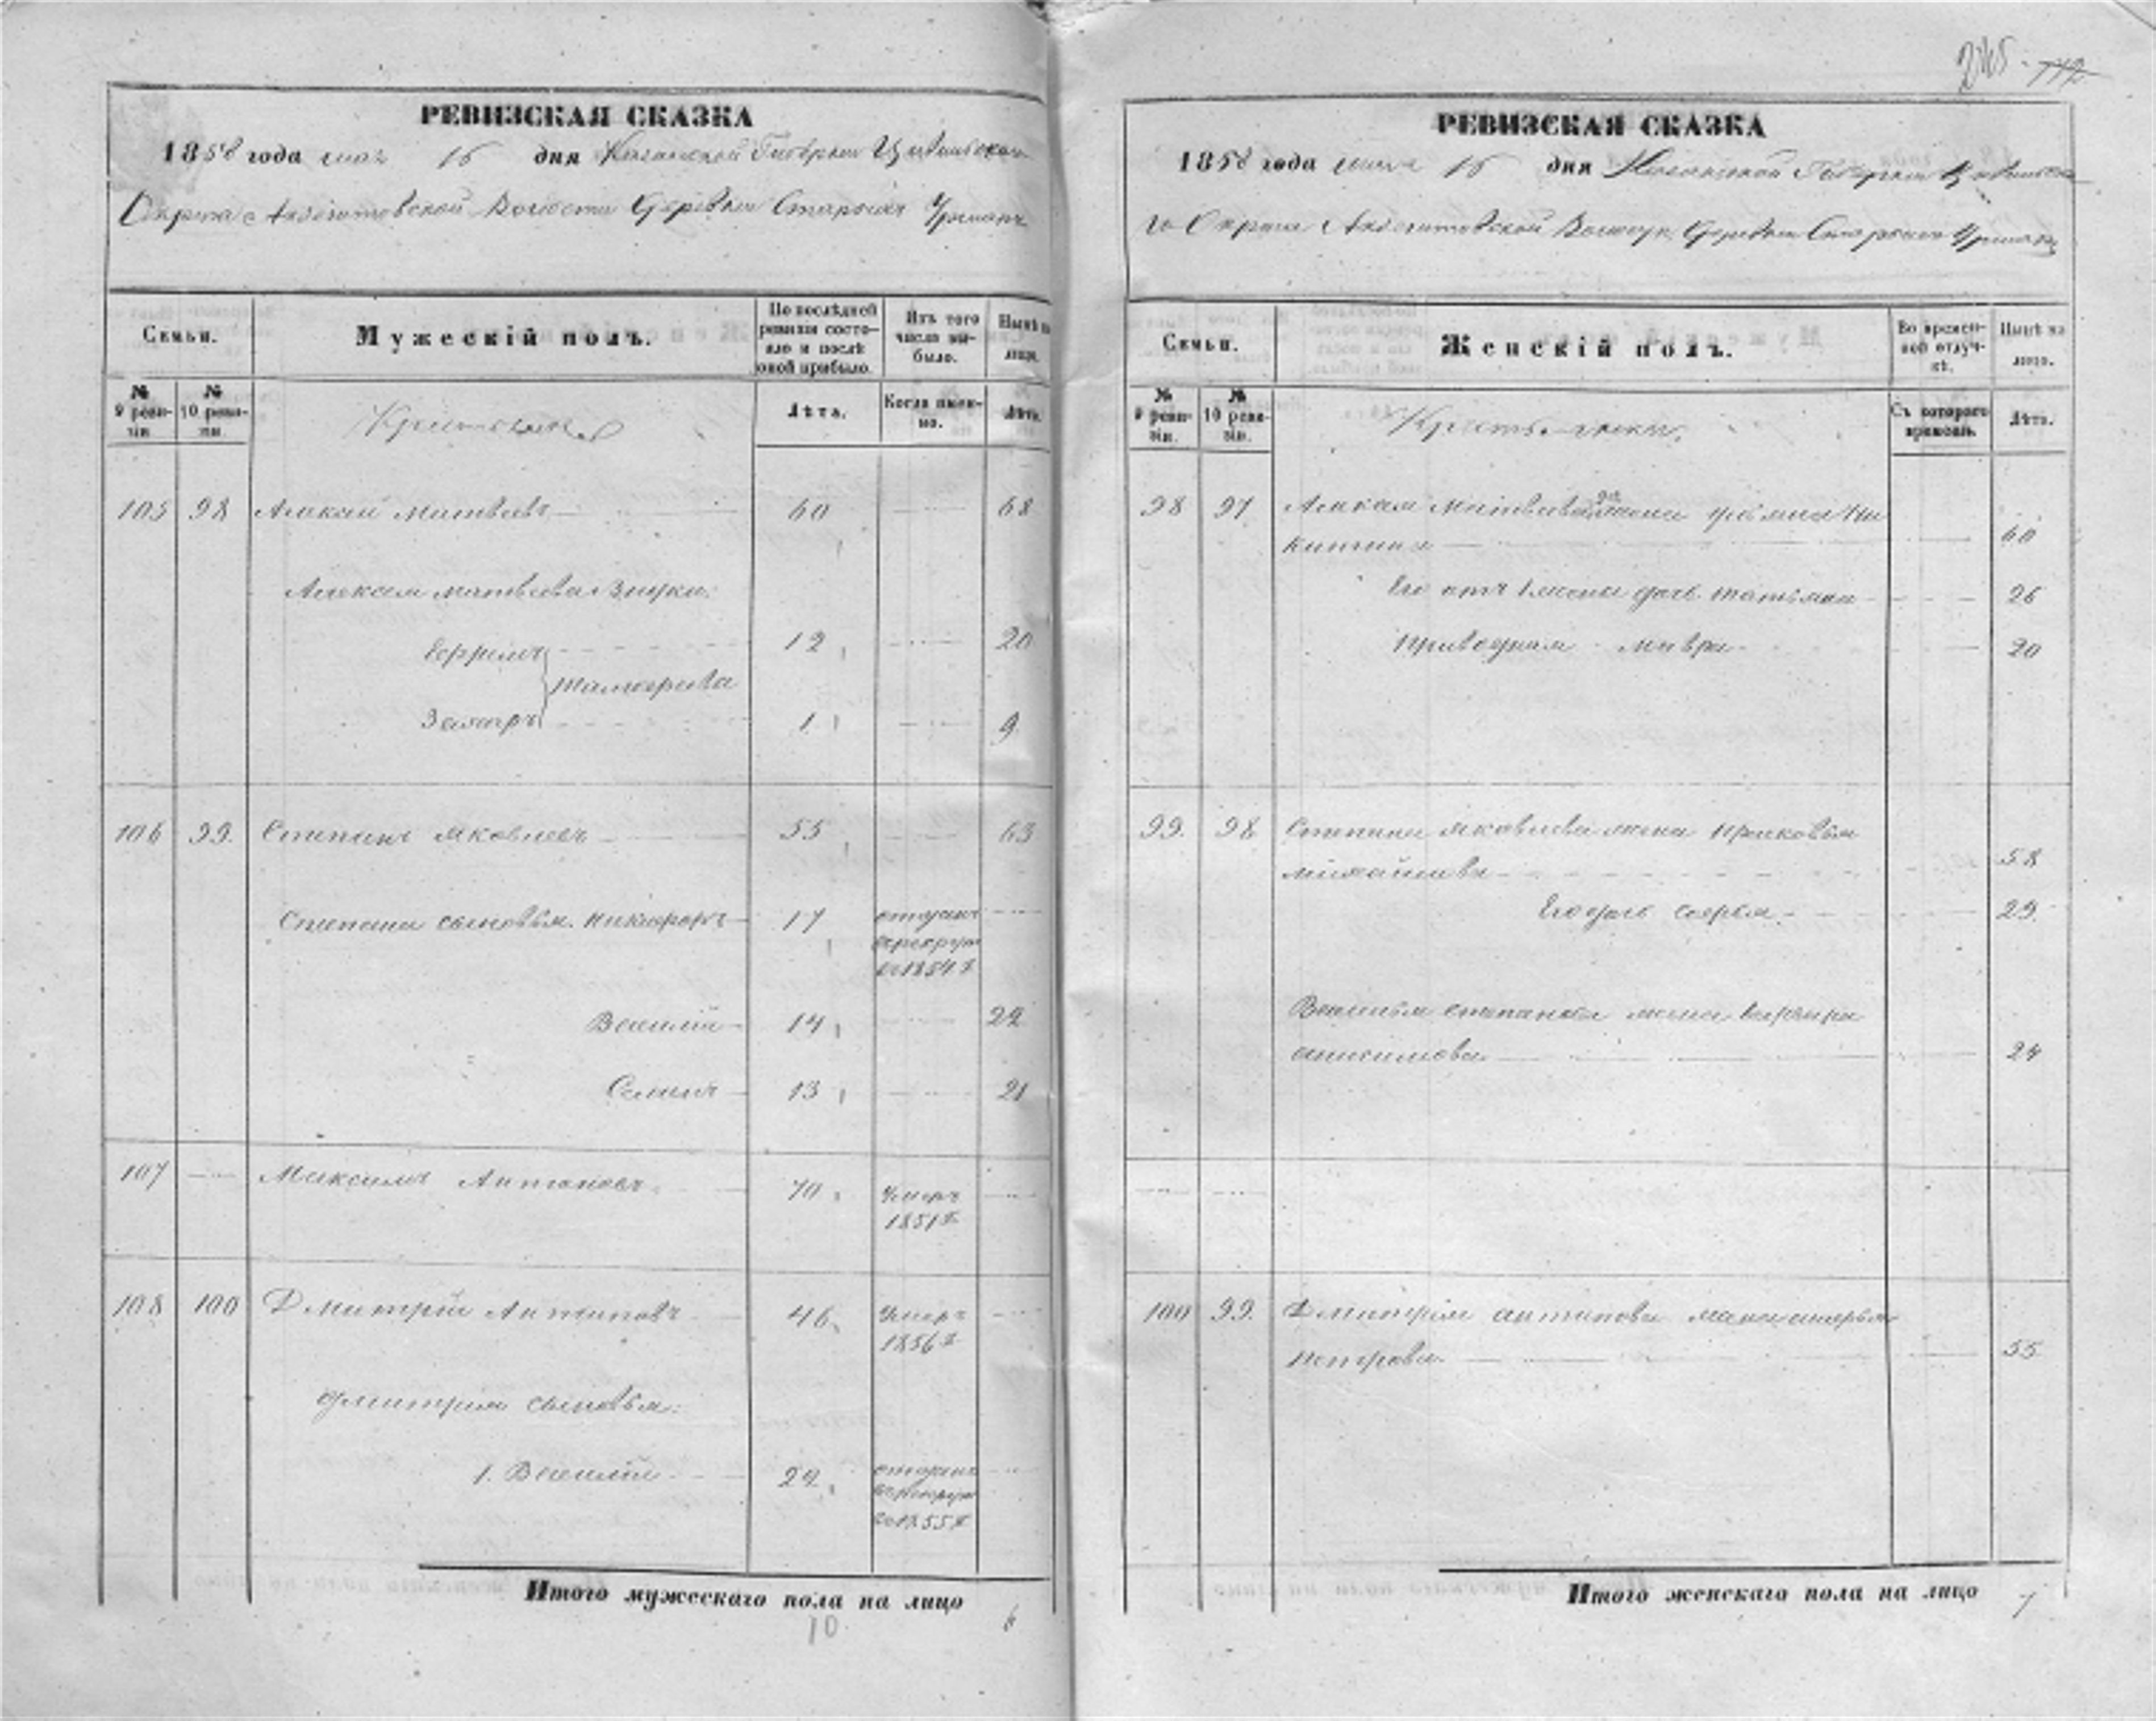 245 112
РЕВИЗСКАЯ СКАЗКА
1858 года мая 15 дня Казанской Губернии Цивильскаго
Округа Акзегитовской Волости Деревни Старыхъ Урмаръ
Семьи.
Мужескій полъ.
По последней ревизіи состояло и послѣ оной прибыло.
Изъ того числа выбыло.
Нынѣ на лицо.
№ 9 ревизіи.
№ 10 ревизіи.
Крестьяне
Лѣта.
Когда именно.
Лѣта.
105 98 Алексей Матвеевъ 60 68
Алексея Матвеева внуки:
12 20
1 9
106 99. Степанъ Яковлевъ 55 63
Степана сыновья. Никифоръ 17 отданъ
в рекруты
в 1854 г
Василій 14 22
Семенъ 13 21
107 Максимъ Антоновъ 70 Умеръ
1851 г
108 100 Дмитрій Антиповъ 46 Умеръ
1856 г
Дмитрія сыновья:
1. Василій 24 отданъ
в рекруты
в 1855 г
Итого мужескаго пола на лицо 6
10
РЕВИЗСКАЯ СКАЗКА
1858 года мая 15 дня Казанской Губерніи Цивильска
го Округа Акзегитовской Волости Деревни Старыхъ Урмаръ
Семьи.
Женскій полъ.
Во временной отлучкѣ.
Нынѣ на лицо.
№ 9 ревизіи.
№ 10 ревизіи.
Крестьянки.
Съ котораго времени.
Лѣта.
98 97 Алексея Матвеева жена Ни
китина 60
Его дочь Татьяна 26
Мавра 20
99. 98 Степана Яковлева жена Прасковья
Михайлова 58
Его дочь 29.
Василья Степанова жена Варвара
Анисимова 24
100 99. Дмитрія Антипова жена Марья
Петрова 55
Итого женскаго пола на лицо 7